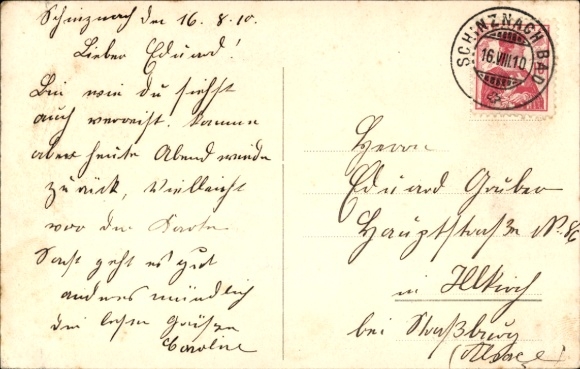 Schinznach den 16. 8. 10.
Lieber Eduard!
Bin wie du siehst
auch verreist. Komme
aber heute Abend wieder
zurück, vielleicht
vor der Karte.
Sonst geht es gut
anderes mündlich
die besten Grüße
Caroline
SCHINZNACH BAD
16.VIII.10
Herrn
Eduard Gruber
Hauptstraße No. 86
in Illkirch
bei Straßburg
(Alsace)